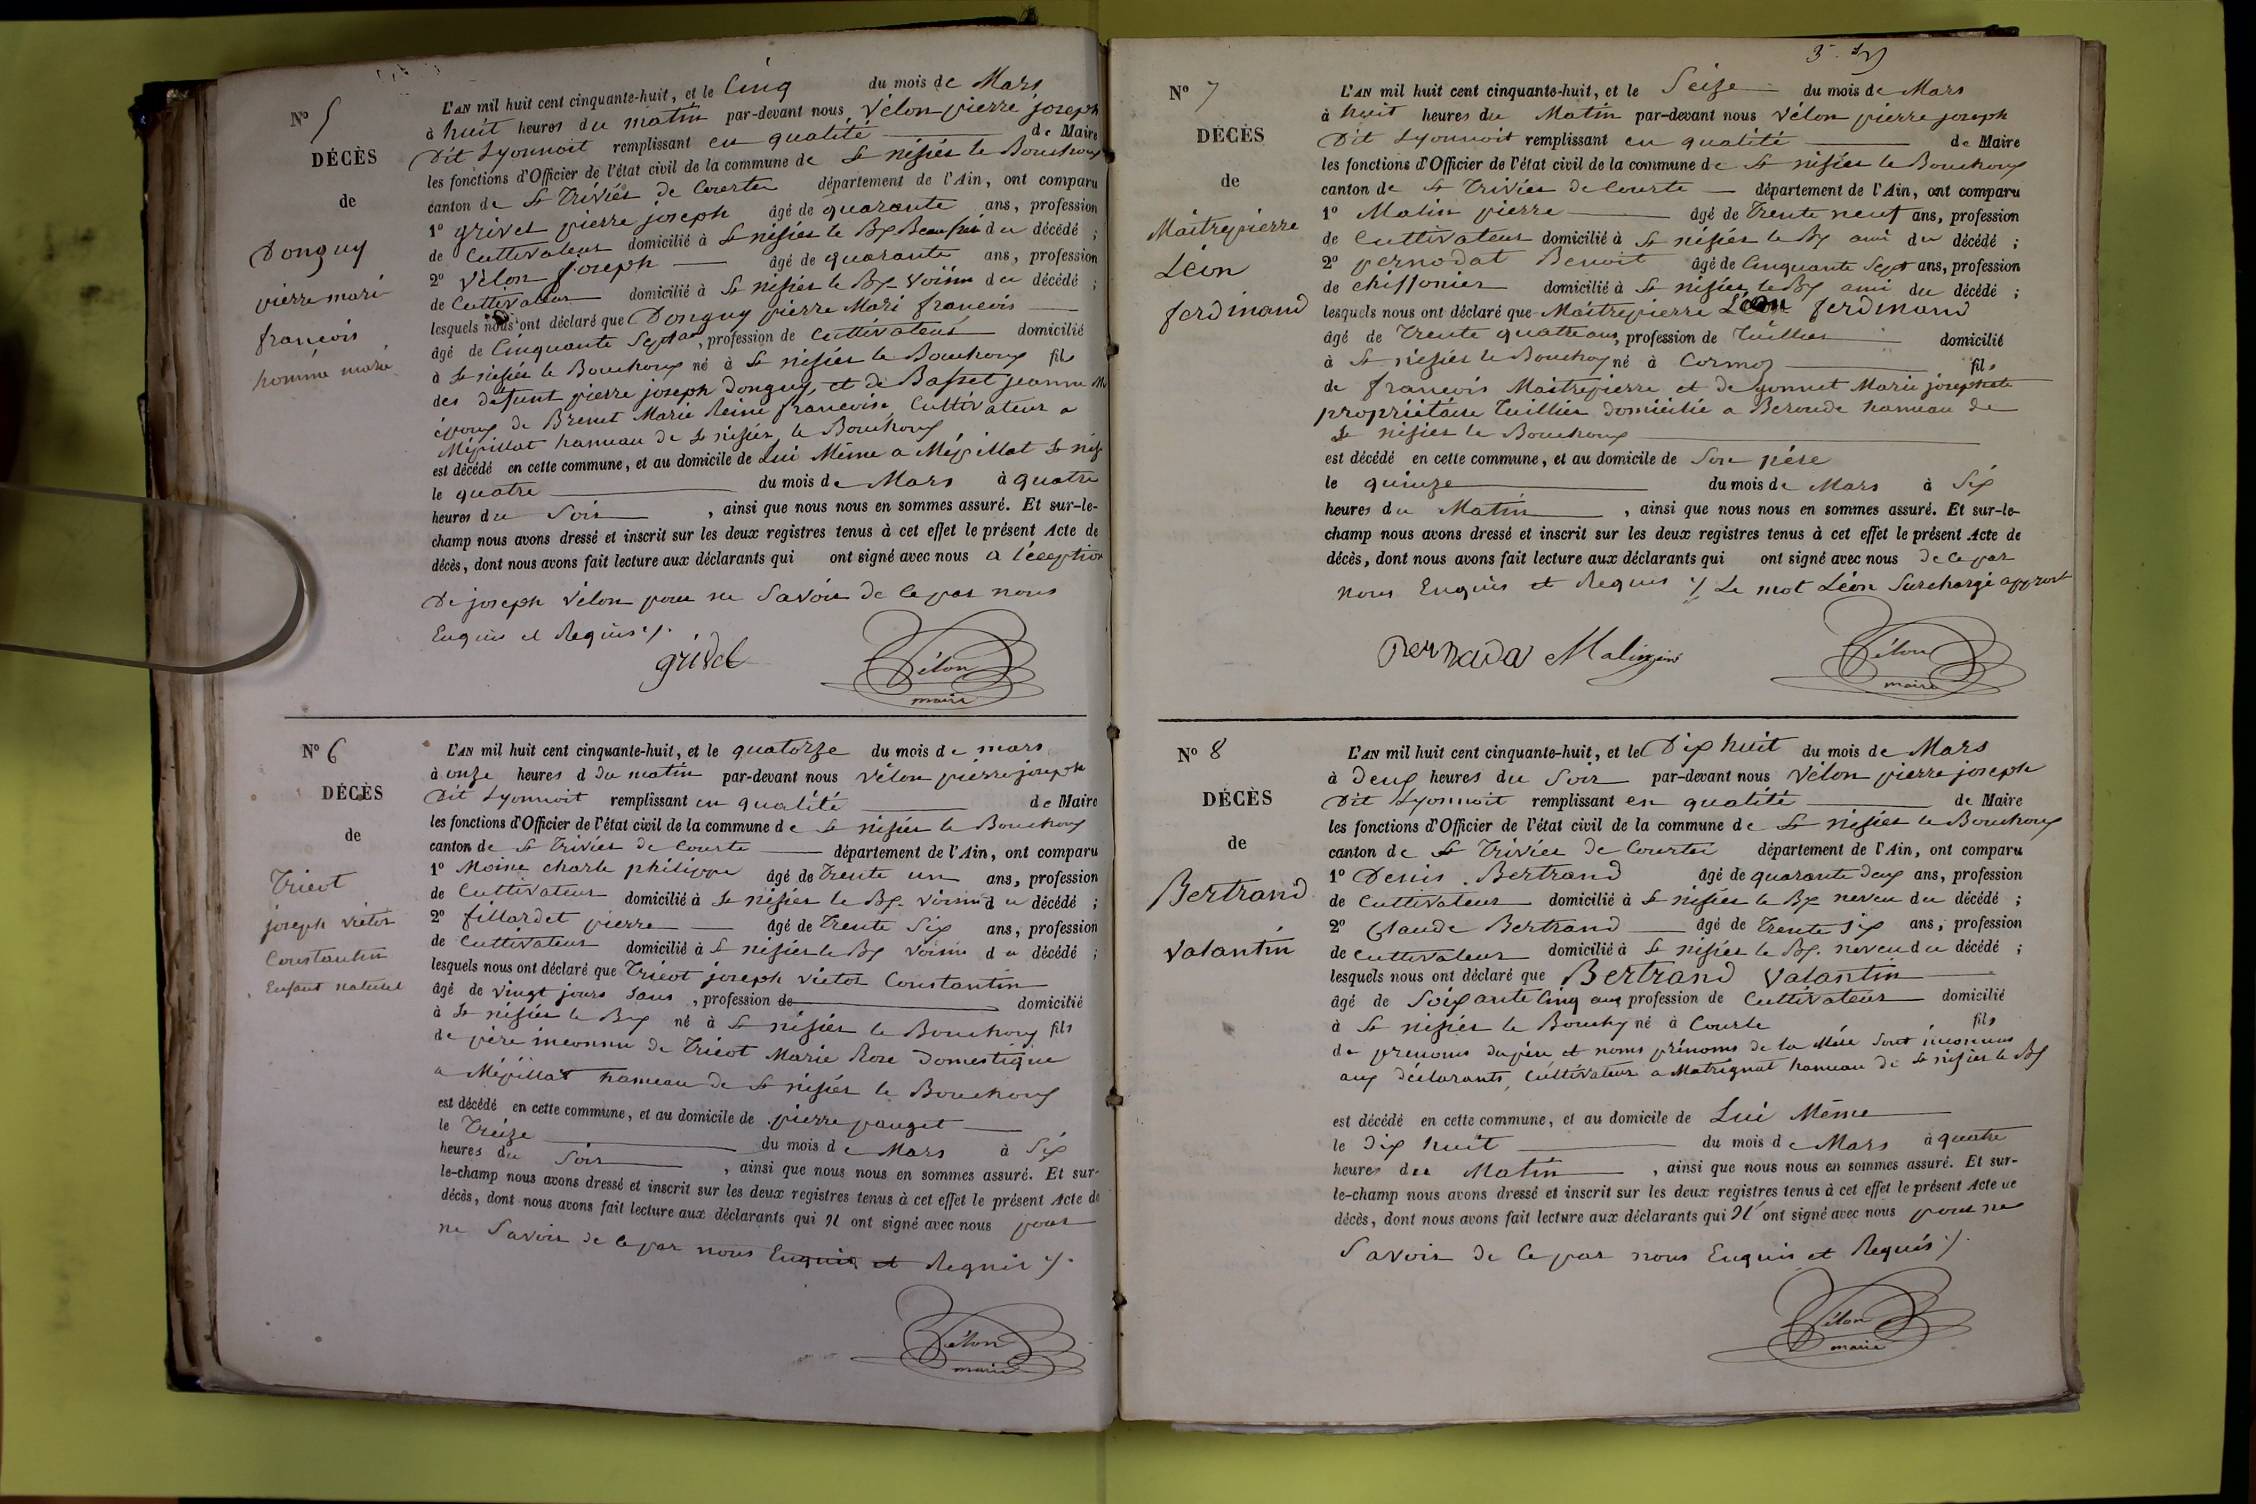 N° 5
DÉCÈS
de
Donguy
pierre mari
francois
homme marié
L'AN mil huit cent cinquante-huit, et le Cinq du mois de Mars
à huit heures du matin par-devant nous Vélon pierre joseph
Dit Lyonnoit remplissant en qualité de Maire
les fonctions d'Officier de l'état civil de la commune de St nisiér le Bouchoux
canton de St Triviér de Courtes département de l'Ain, ont comparu
1° grivet pierre joseph âgé de quarante ans, profession
de Cultivateur domicilié à St nisiér le Bx Beaufrér du décédé ;
2° Vélon joseph âgé de quarante ans, profession
de Cultivateur domicilié à St nisiér le Bx Voisin du décédé ;
lesquels nous ont déclaré que Donguy pierre Mari francois
âgé de Cinquante Sept ans, profession de Cultivateur domicilié
à St nisiér le Bouchoux né à St nisiér le Bouchoux fils
des defunt pierre joseph Donguy, et de Basset jeanne M
époux de Brenet Marie Reine francoise, Cultivateur a
Mépillat hameau de St nisiér le Bouchoux
est décédé en cette commune, et au domicile de Lui Même a Mépillat St nis
le quatre du mois de Mars à quatre
heures du Soir , ainsi que nous nous en sommes assuré. Et sur-le-
champ nous avons dressé et inscrit sur les deux registres tenus à cet effet le présent Acte de
décès, dont nous avons fait lecture aux déclarants qui ont signé avec nous a l'éception
De joseph Vélon pour ne Savoir de ce par nous
Enquis et Requis ./.
grivel
Vélon
maire
N° 6
DÉCÈS
de
Tricot
joseph victor
Constantin
Enfant naturel
L'AN mil huit cent cinquante-huit, et le quatorze du mois de mars
à onze heures d du matin par-devant nous Vélon pierre joseph
Dit Lyonnoit remplissant en qualité de Maire
les fonctions d'Officier de l'état civil de la commune de St nisiér le Bouchoux
canton de St Triviér de Courte département de l'Ain, ont comparu
1° Moine charle philippe âgé de Trente un ans, profession
de Cultivateur domicilié à St nisiér le Bx. voisin du décédé ;
2° fillardet pierre âgé de Trente Six ans, profession
de Cultivateur domicilié à St nisiér le Bx Voisin du décédé ;
lesquels nous ont déclaré que Tricot joseph victor Constantin
âgé de vingt jours Sans , profession de domicilié
à St nisiér le Bx né à St nisiér le Bouchoux fils
de père inconnu de Tricot Marie Rose Domestique
a Mépillat hameau de St nisiér le Bouchoux
est décédé en cette commune, et au domicile de pierre pauget
le Treize du mois de Mars à Six
heures du Soir , ainsi que nous nous en sommes assuré. Et sur-
le-champ nous avons dressé et inscrit sur les deux registres tenus à cet effet le présent Acte de
décès, dont nous avons fait lecture aux déclarants qui n' ont signé avec nous pour
ne Savoir de ce par nous Enquis et Requis ./.
Vélon
maire
N° 7
DÉCÈS
de
Maitrepierre
Léon
ferdinand
L'AN mil huit cent cinquante-huit, et le Seize du mois de Mars
à huit heures du Matin par-devant nous Vélon pierre joseph
Dit Lyonnoit remplissant en qualité de Maire
les fonctions d'Officier de l'état civil de la commune de St nisiér le Bouchoux
canton de St Triviér de Courte département de l'Ain, ont comparu
1° Malin pierre âgé de Trente neuf ans, profession
de Cultivateur domicilié à St nisiér le Bx ami du décédé ;
2° pernodat Benoit âgé de Cinquante Sept ans, profession
de chiffonier domicilié à St nisiér le Bx ami du décédé ;
lesquels nous ont déclaré que Maitrepierre Léon ferdinand
âgé de Trente quatre ans, profession de Tuillier domicilié
à St nisiér le Bouchoy né à Cormoz fils
de francois Maitrepierre et de gonnet Marie josephete
propriétaire Tuillier domicilié a Beroude hameau de
St nisiér le Bouchoux
est décédé en cette commune, et au domicile de Son pére
le quinze du mois de Mars à Six
heures du Matin , ainsi que nous nous en sommes assuré. Et sur-le-
champ nous avons dressé et inscrit sur les deux registres tenus à cet effet le présent Acte de
décès, dont nous avons fait lecture aux déclarants qui ont signé avec nous de ce par
nous Enquis et Requis ./. Le mot Léon Surchargé
Pernada Malin
Vélon
maire
N° 8
DÉCÈS
de
Bertrand
Valantin
L'AN mil huit cent cinquante-huit, et le Dix huit du mois de Mars
à deux heures du Soir par-devant nous Vélon pierre joseph
Dit Lyonnoit remplissant en qualité de Maire
les fonctions d'Officier de l'état civil de la commune de St nisiér le Bouchoux
canton de St Triviér de Courtes département de l'Ain, ont comparu
1° Denis Bertrand âgé de quarante deux ans, profession
de Cultivateur domicilié à St nisiér le Bx neveu du décédé ;
2° Claude Bertrand âgé de Trente six ans, profession
de Cultivateur domicilié à St nisiér le Bx. neveu du décédé ;
lesquels nous ont déclaré que Bertrand Valantin
âgé de Soixante Cinq ans profession de Cultivateur domicilié
à St nisiér le Bouchy né à Courte fils
de prenoms du pére et noms prénoms de la Mére Sont inconnus
aux déclarants, Cultivateur a Matrignat hameau de St nisiér le Bx
est décédé en cette commune, et au domicile de Lui Même
le Dix huit du mois de Mars à quatre
heures du Matin , ainsi que nous nous en sommes assuré. Et sur-
le-champ nous avons dressé et inscrit sur les deux registres tenus à cet effet le présent Acte de
décès, dont nous avons fait lecture aux déclarants qui n' ont signé avec nous pour ne
Savoir de ce par nous Enquis et Requis ./.
Vélon
maire